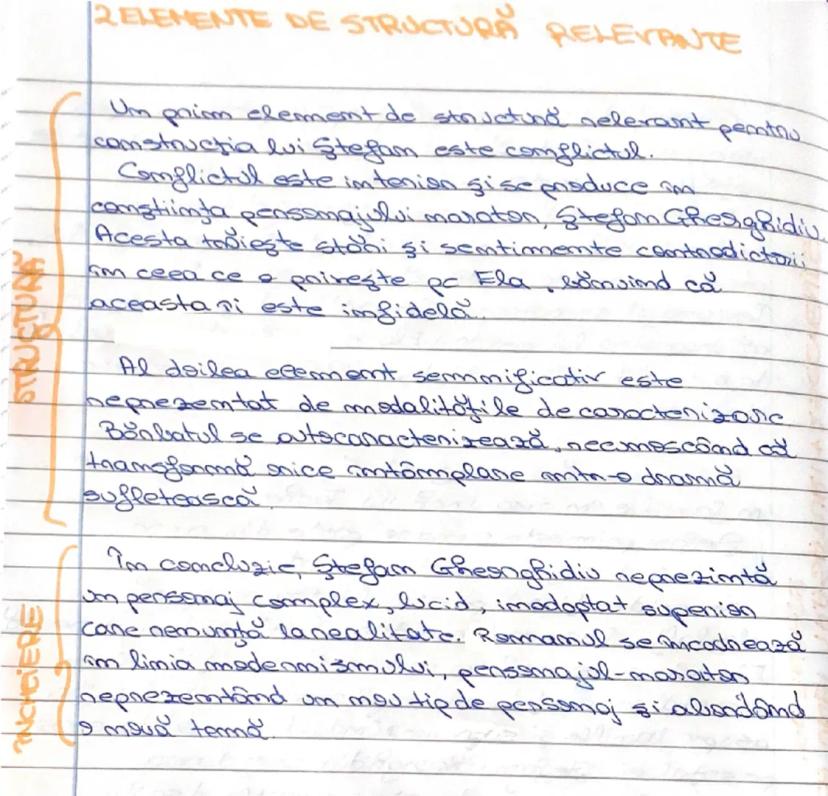 2 ELEMENTE DE STRUCTURĂ RELEVANTE
Un prim element de structură relevant pentru
construcția lui Ștefan este conflictul.
Conflictul este interior și se produce în
conștiința personajului narator, Ștefan Gheorghidiu.
Acesta trăiește stări și sentimente contradictorii
în ceea ce o privește pe Ela, bănuind că
aceasta îi este infidelă.
STRUCTURĂ
Al doilea element semnificativ este
reprezentat de modalitățile de caracterizare
Bărbatul se autocaracterizează, recunoscând că
transformă orice întâmplare într-o dramă
sufletească.
În concluzie, Ștefan Gheorghidiu reprezintă
un personaj complex, lucid, inadaptat superior
care renunță la realitate. Romanul se încadrează
în linia modernismului, personajul-narator
reprezentând un nou tip de personaj și abordând
o nouă temă.
ÎNCHEIERE